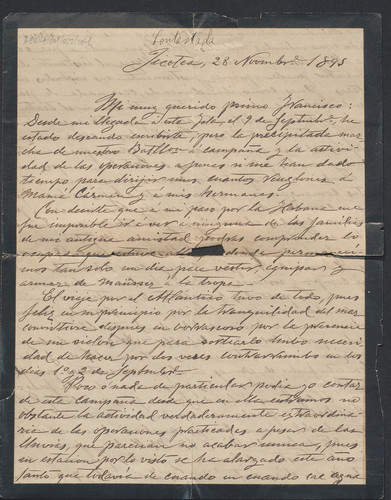 Contestada
Jicotea, 28 Novembre 1895
Mi muy querido primo Francisco:
Desde mi llegada á esta Isla, el 9 de Septbre, he
estado deseando escribirte, pero la precipitada mar-
cha de nuestro Batllón á campaña y la activi-
dad de las operaciones apenas si me han dado
tiempo para dirijir unos cuantos renglones á
Mamá Cármen y á mis hermanas.
Con decirte que á mi paso por la Habana me
fué imposible ir á ver á ninguna de las familias
de mi antigua amistad podrás comprender lo
ocupado que estuve
donde permaneci-
mos tan solo un dia para vestir, equipar y
armar de mausser á la tropa.
El viaje por el Atlántico tuvo de todo, pues
feliz en un principio por la tranquilidad del mar
convirtióse despues en borrascoso por la presencia
de un ciclon que para sortearlo hubo necesi-
dad de hacer por dos veces contrarrumbo en los
dias 1º y 2 de Septembre.
Poco ó nada de particular podia yo contar
de esta campaña desde que en ella entramos no
obstante la actividad verdaderamente extraordina-
ria de las operaciones practicadas á pesar de las
lluvias, que parecian no acabar nunca, pues
su estacion por lo visto se ha alargado este año
tanto que todavia de cuando en cuando cae agua